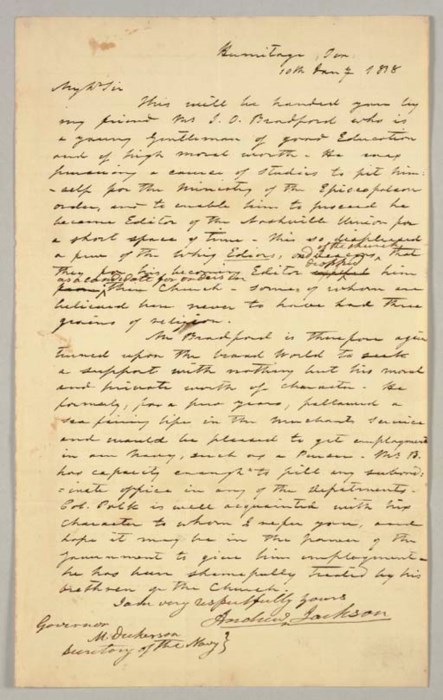 Hermitage, Ten
10th Jany 1838
My Dr Sir
This will be handed you by
my friend Mr J. O. Bradford who is
a young Gentleman of good Education
and of high moral worth - He was
pursuing a course of studies to fit him-
self for the Ministry of the Episcopalean
order, and to enable him to proceed he
became Editor of the Nashville Union for
a short space of time - this so displeased
a few of the Whig of the church
that
they for his becoming Editor dropped him
as a candidate for orders in
their Church - some of whom are
believed here never to have had three
grains of religion.
Mr Bradford is therefore again
turned upon the broad World to seek
a support with nothing but his moral
and private worth of character. He
formerly, for a few years, followed a
sea faring life in the merchants service
and would be pleased to get employment
in our Navy, such as a Purser - Mr B.
has capacity enough to fill any subord-
inate office in any of the departments.
Col. Polk is well acquainted with his
character to whom I refer you, and
hope it may be in the power of the
Government to give him employment -
he has been shamefully treated by his
brethren of the Church.
I am very respectfully yours
Andrew Jackson
Governor
M. Dickerson
Secretary of the Navy